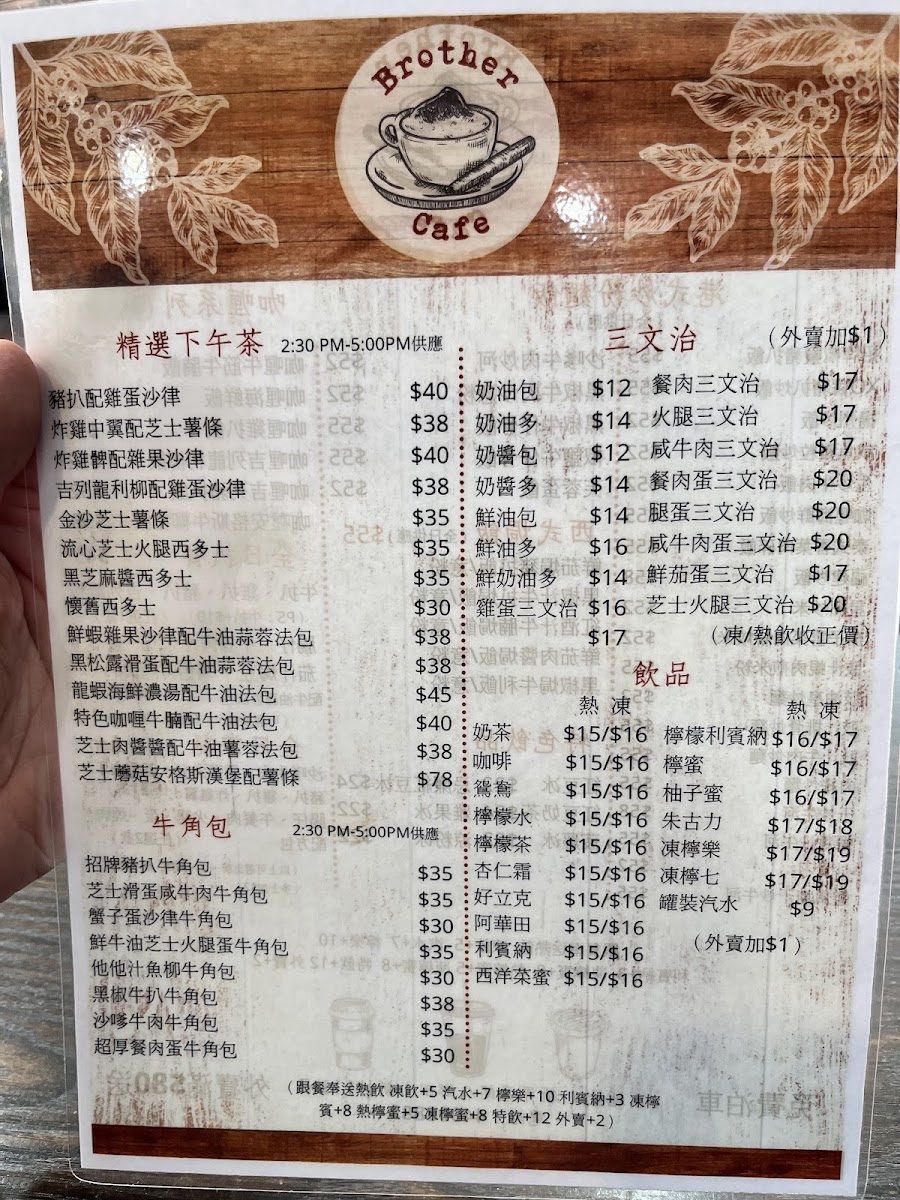 Brother
Cafe
精選下午茶 2:30 PM-5:00PM供應
豬扒配雞蛋沙律 $40
炸雞中翼配芝士薯條 $38
炸雞髀配雜果沙律 $40
吉列龍利柳配雞蛋沙律 $38
金沙芝士薯條 $35
流心芝士火腿西多士 $35
黑芝麻醬西多士 $35
懷舊西多士 $30
鮮蝦雜果沙律配牛油蒜蓉法包 $38
黑松露滑蛋配牛油蒜蓉法包 $38
龍蝦海鮮濃湯配牛油法包 $45
特色咖喱牛腩配牛油法包 $40
芝士肉醬醬配牛油薯蓉法包 $38
芝士蘑菇安格斯漢堡配薯條 $78
牛角包 2:30 PM-5:00PM供應
招牌豬扒牛角包 $35
芝士滑蛋咸牛肉牛角包 $35
蟹子蛋沙律牛角包 $30
鮮牛油芝士火腿蛋牛角包 $35
他他汁魚柳牛角包 $30
黑椒牛扒牛角包 $38
沙嗲牛肉牛角包 $35
超厚餐肉蛋牛角包 $30
三文治 (外賣加$1)
奶油包 $12 餐肉三文治 $17
奶油多 $14 火腿三文治 $17
奶醬包 $12 咸牛肉三文治 $17
奶醬多 $14 餐肉蛋三文治 $20
鮮油包 $14 腿蛋三文治 $20
鮮油多 $16 咸牛肉蛋三文治 $20
鮮奶油多 $14 鮮茄蛋三文治 $17
雞蛋三文治 $16 芝士火腿三文治 $20
$17 (凍/熱飲收正價)
飲品
熱 凍 熱 凍
奶茶 $15/$16 檸檬利賓納 $16/$17
咖啡 $15/$16 檸蜜 $16/$17
鴛鴦 $15/$16 柚子蜜 $16/$17
檸檬水 $15/$16 朱古力 $17/$18
檸檬茶 $15/$16 凍檸樂 $17/$19
杏仁霜 $15/$16 凍檸七 $17/$19
好立克 $15/$16 罐裝汽水 $9
阿華田 $15/$16
利賓納 $15/$16 (外賣加$1)
西洋菜蜜 $15/$16
(跟餐奉送熱飲 凍飲+5 汽水+7 檸樂+10 利賓納+3 凍檸
賓+8 熱檸蜜+5 凍檸蜜+8 特飲+12 外賣+2)